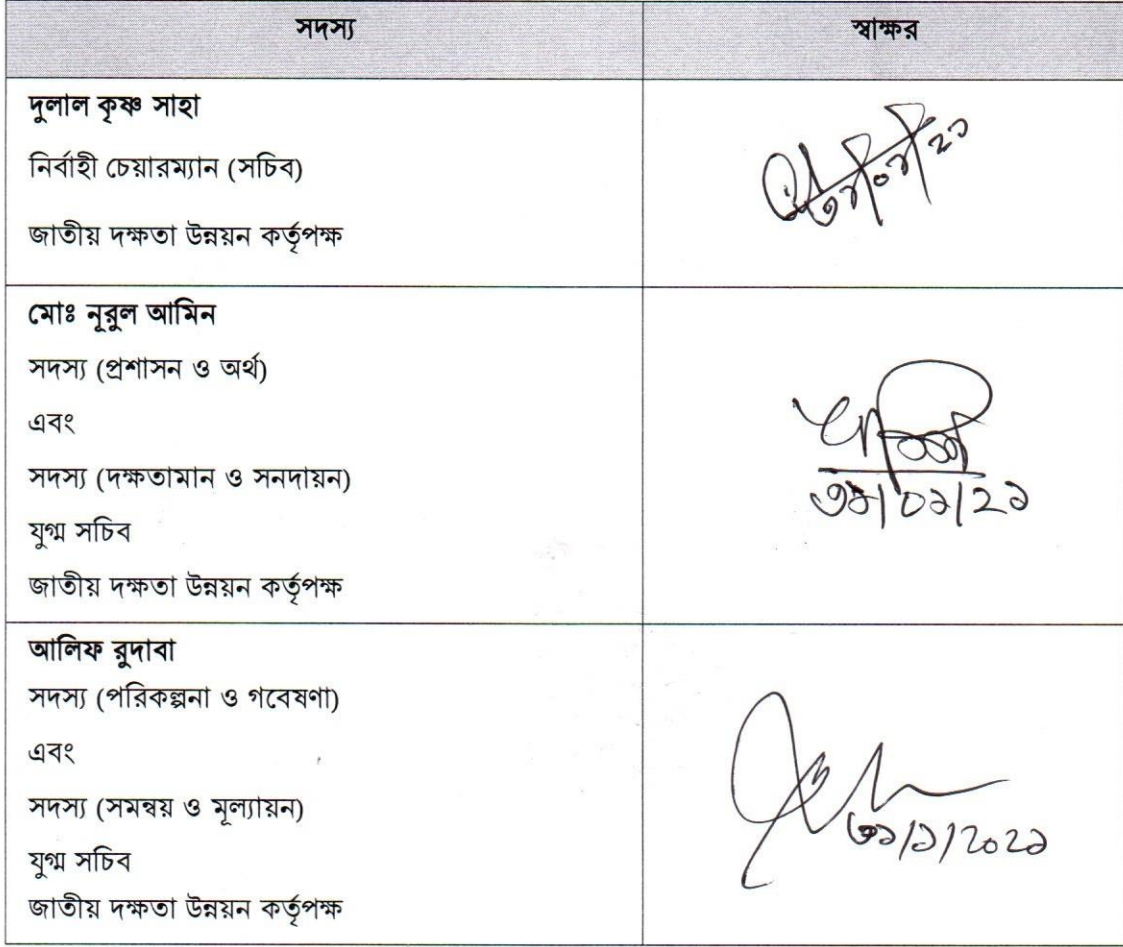 সদস্য
স্বাক্ষর
দুলাল কৃষ্ণ সাহা
নির্বাহী চেয়ারম্যান (সচিব)
জাতীয় দক্ষতা উন্নয়ন কর্তৃপক্ষ
৩১/০১/২১
মোঃ নূরুল আমিন
সদস্য (প্রশাসন ও অর্থ)
এবং
সদস্য (দক্ষতামান ও সনদায়ন)
যুগ্ম সচিব
জাতীয় দক্ষতা উন্নয়ন কর্তৃপক্ষ
৩১/০১/২১
আলিফ রুদাবা
সদস্য (পরিকল্পনা ও গবেষণা)
এবং
সদস্য (সমন্বয় ও মূল্যায়ন)
যুগ্ম সচিব
জাতীয় দক্ষতা উন্নয়ন কর্তৃপক্ষ
৩১/১/২০২১